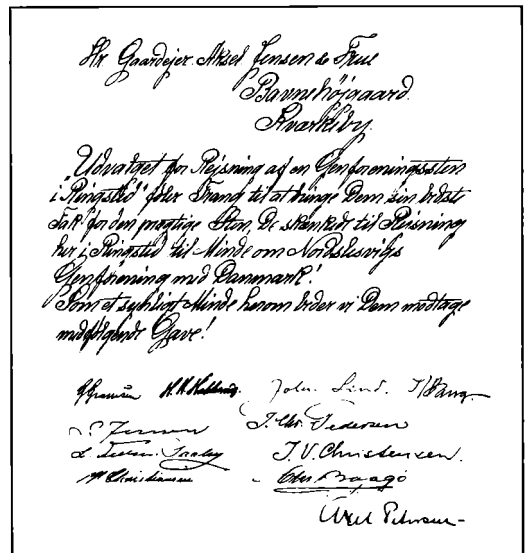 Hr. Gaardejer Aksel Jensen & Frue
Bavnehöjgaard.
Kværkeby.
„Udvalget for Rejsning af en Genforeningssten
i Ringsted“ føler Trang til at bringe Dem sin bedste
Tak for den prægtige Sten, De skænkede til Rejsning
her i Ringsted til Minde om Nordslesvigs
Genforening med Danmark!
Som et synligt Minde herom beder vi Dem modtage
medfølgende Gave!
H. K. Johs. Lind. Bang.
Jensen J. Chr. Pedersen
L. J. V. Christensen.
Christiansen Chr. Baagø
Axel Petersen